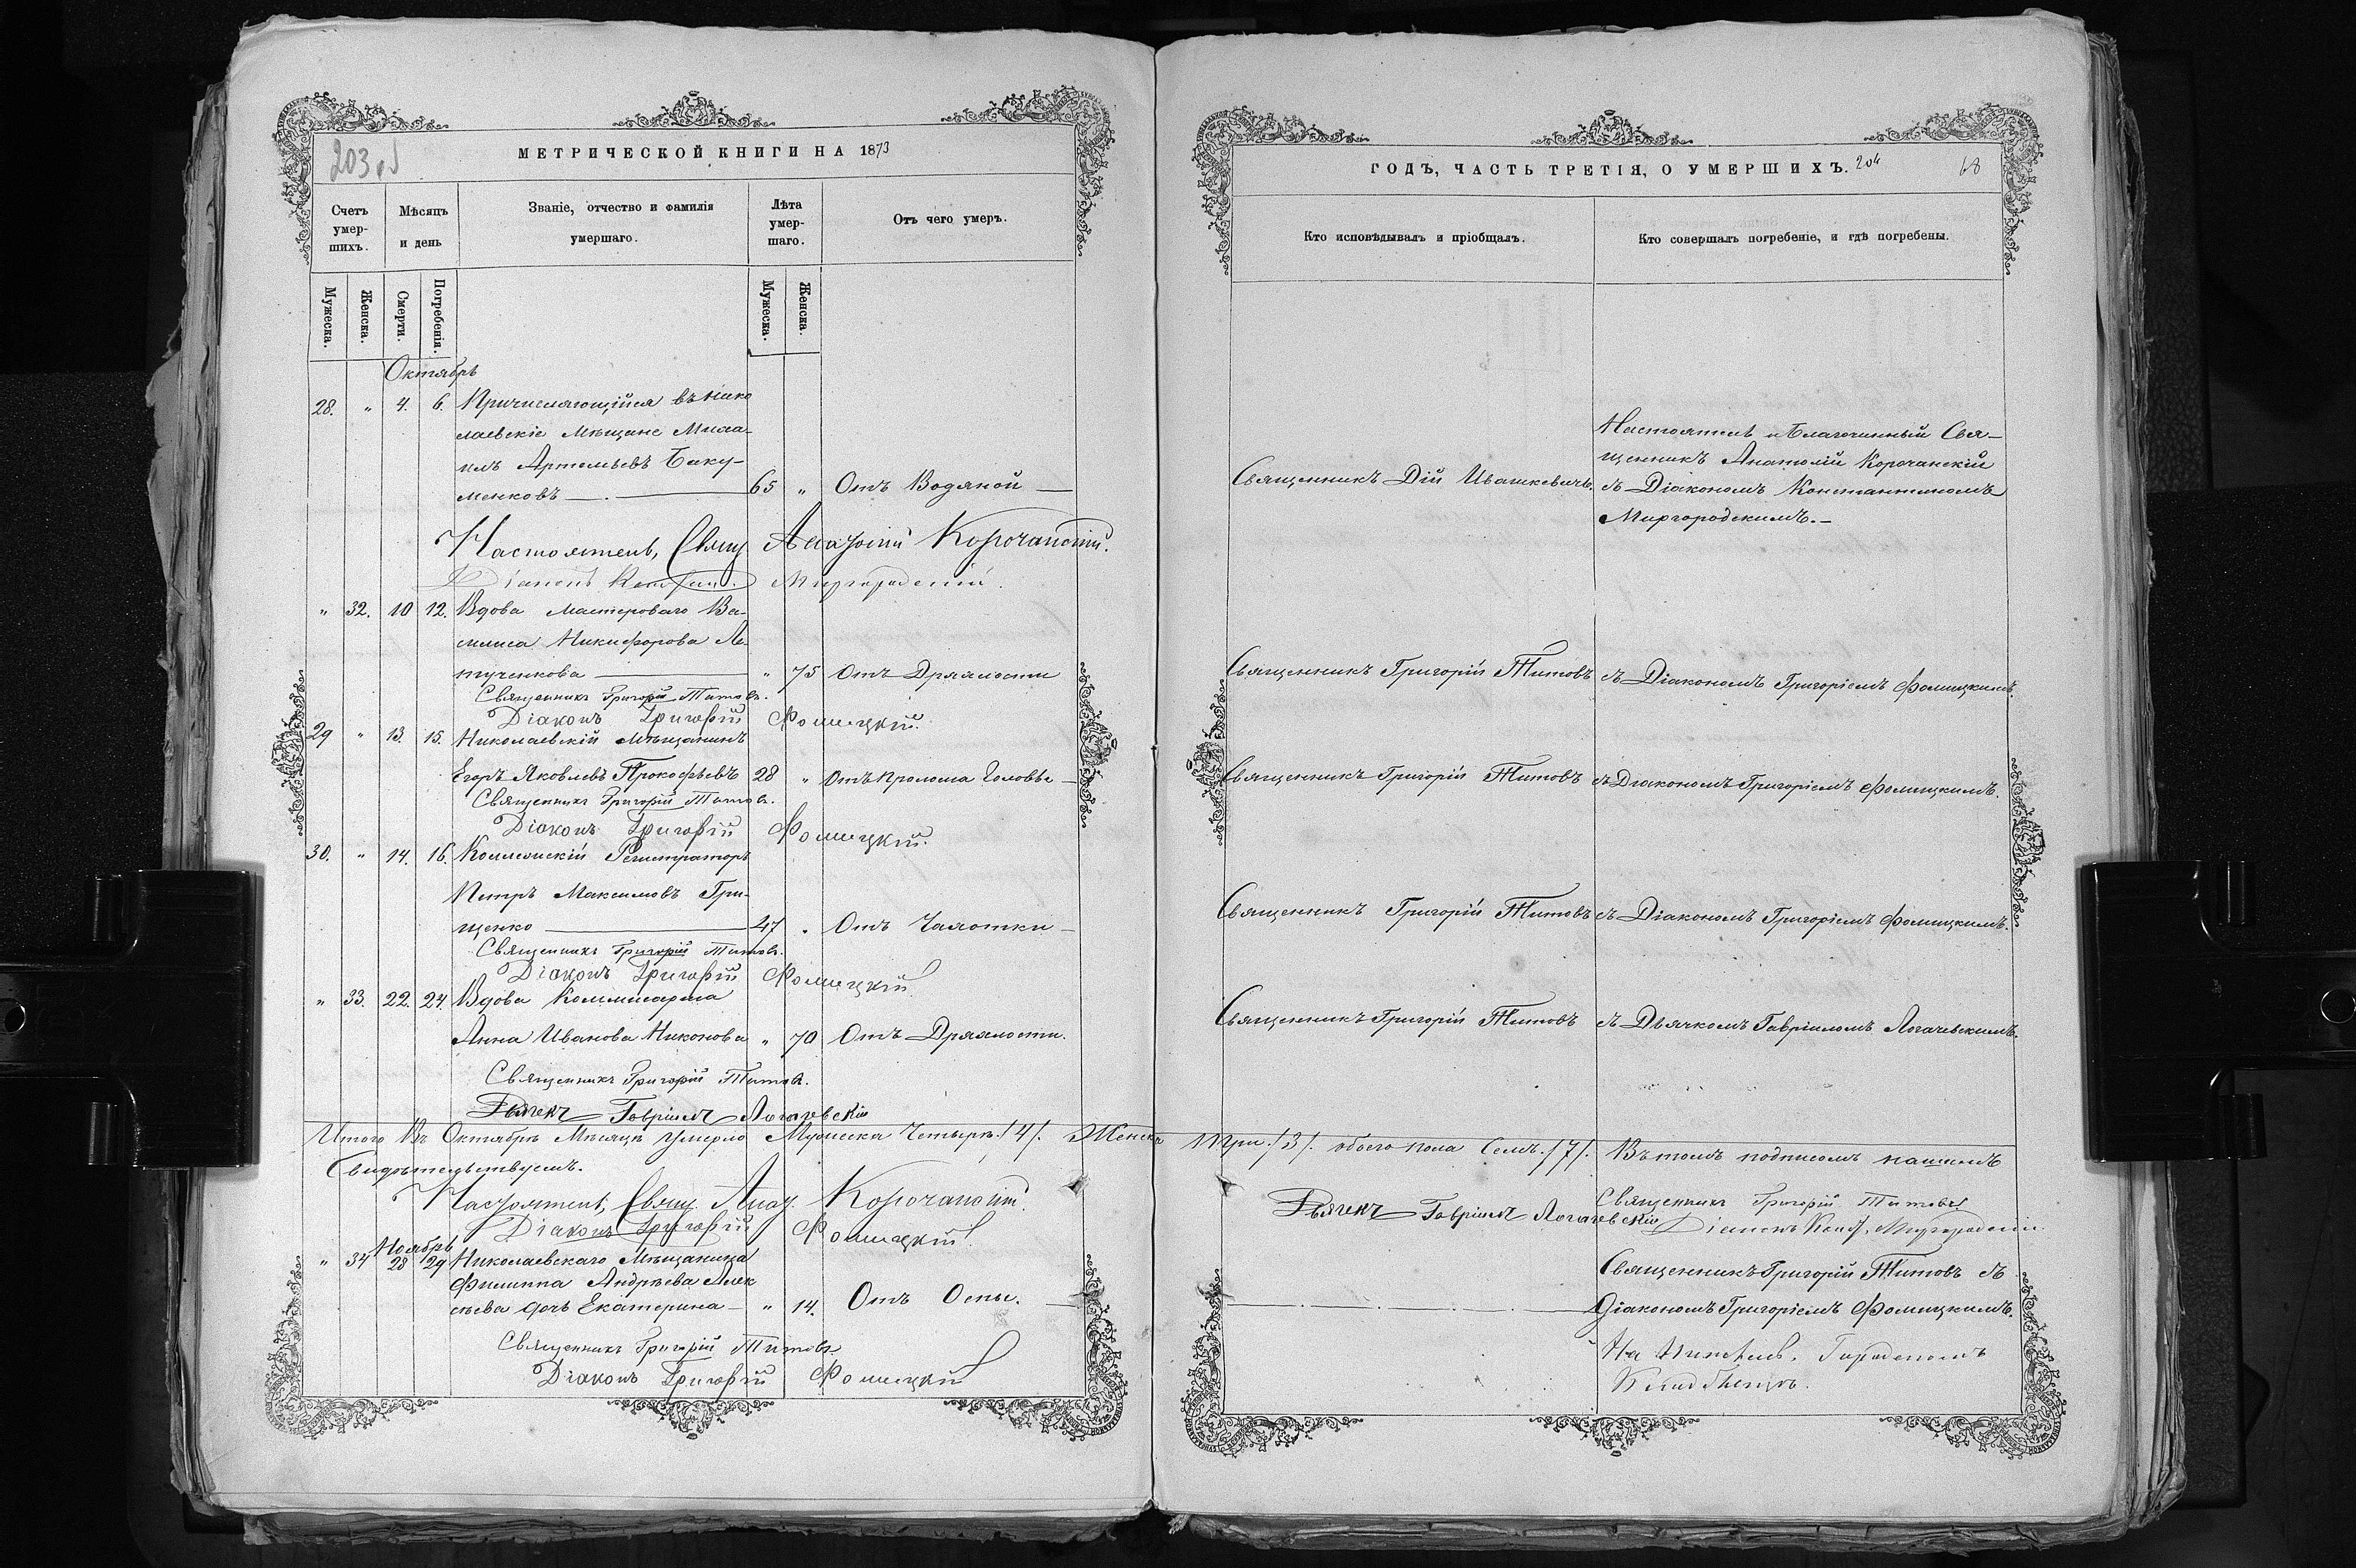 203 об
МЕТРИЧЕСКОЙ КНИГИ НА 1873
Счетъ умер-шихъ.
Мѣсяцъ и день
Званіе, отчество и фамилія умершаго.
Лѣта умер-шаго.
Отъ чего умеръ.
Мужеска.
Женска.
Смерти.
Погребенія.
Мужеска.
Женска.
Октябрь
28. " 4. 6. Причисляющійся въ Нико
лаевскіе Мѣщане Миха-
илъ Артемьевъ Баку-
менковъ 65 " Отъ Водяной
Настоятель, Свящ Анатолій Корочанскій.
Діаконъ Констан. Миргородскій.
" 32. 10 12. Вдова мастероваго Ва-
силиса Никифорова Ле-
тученкова " 75 Отъ Дряхлости
Священникъ Григорій Титовъ.
Діаконъ Григорій Фомицкій.
29 " 13. 15. Николаевскій Мѣщанинъ
Егоръ Яковлевъ Прокофьевъ 28 " Отъ пролома Головы
Священникъ Григорій Титовъ.
Діаконъ Григорій Фомицкій.
30. " 14. 16. Коллежскій Регистраторъ
Петръ Максимовъ Гри-
щенко 47 " Отъ Чахотки
Священникъ Григорій Титовъ.
Діаконъ Григорій Фомицкій.
" 33. 22. 24. Вдова Коммисарша
Анна Иванова Никонова " 70 Отъ Дряхлости.
Священникъ Григорій Титовъ.
Дьячекъ Гавріилъ Логачевскій
Итого Въ Октябрѣ Мѣсяцѣ умерло Мужеска Четыре. /4/. Женска
Свидѣтельствуемъ.
Настоятель, Свящ. Анат. Корочанскій.
Діаконъ Григорій Фомицкій.
Ноябрь
" 34 28 29 Николаевскаго Мѣщанина
Филиппа Андрѣева Алек
сѣева дочь Екатерина " 14. Отъ Оспы.
Священникъ Григорій Титовъ
Діаконъ Григорій Фомицкій
ГОДЪ, ЧАСТЬ ТРЕТІЯ, О УМЕРШИХЪ. 204
68
Кто исповѣдывалъ и пріобщалъ.
Кто совершалъ погребеніе, и гдѣ погребены.
Священникъ Дій Ивашкевичъ.
Настоятель и Благочинный Свя-
щенникъ Анатолій Корочанскій
съ Діакономъ Константиномъ
Миргородскимъ.
Священникъ Григорій Титовъ съ Діакономъ Григоріемъ Фомицкимъ.
Священникъ Григорій Титовъ съ Діакономъ Григоріемъ Фомицкимъ.
Священникъ Григорій Титовъ съ Діакономъ Григоріемъ Фомицкимъ.
Священникъ Григорій Титовъ съ Дьячкомъ Гавріиломъ Логачевскимъ.
три. /3/. обоего пола Семь. /7/. Въ томъ подписомъ нашимъ
Священникъ Григорій Титовъ
Дьячекъ Гавріилъ Логачевскій
Діаконъ Конст. Миргородскій
Священникъ Григорій Титовъ съ
Діакономъ Григоріемъ Фомицкимъ.
На Городскомъ
Кладбищѣ.